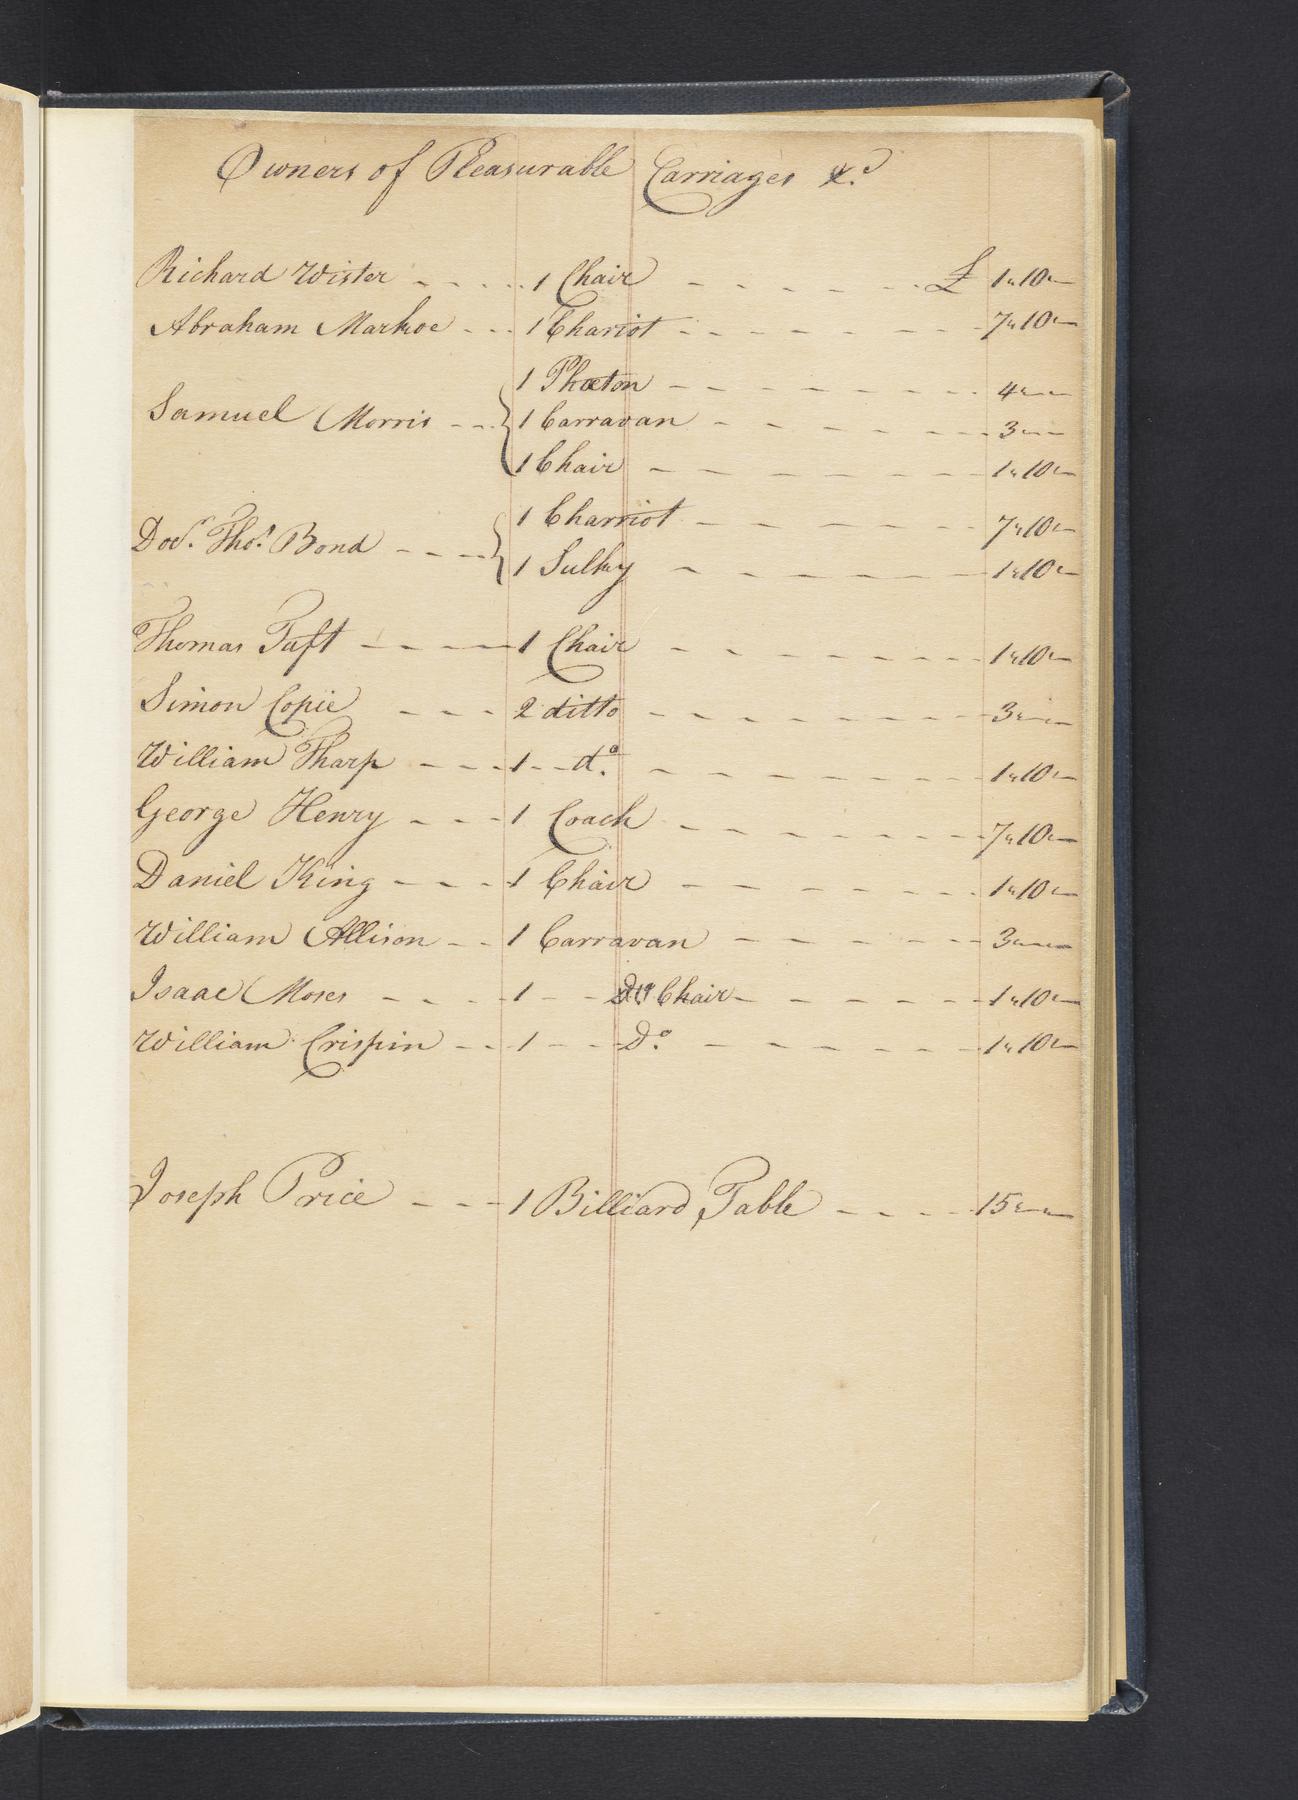 Owners of Pleasurable Carriages &c.
Richard Wister - - - - - 1 Chair - - - - - - £ 1"10"-
Abraham Markoe - - - 1 Chariot - - - - - - 7"10"-
1 Phæton - - - - - - 4"-"-
Samuel Morris - - - { 1 Carravan - - - - - - 3"-"-
1 Chair - - - - - - 1"10"-
Doc.r Tho.s Bond - - - - { 1 Charriot - - - - - - 7"10"-
1 Sulky - - - - - - 1"10"-
Thomas Taft - - - - 1 Chair - - - - - - 1"10"-
Simon Copie - - - 2 ditto - - - - - - 3"-"-
William Tharp - - - 1 - - d.o - - - - - - 1"10"-
George Henry - - - 1 Coach - - - - - - 7"10"-
Daniel King - - - 1 Chair - - - - - - 1"10"-
William Allison - - 1 Carravan - - - - - 3"-"-
Isaac Moses - - - - 1 - - Chair - - - - - 1"10"-
William Crispin - - 1 - - - D.o - - - - - 1"10"-
Joseph Price - - - 1 Billiard Table - - - - 15"-"-